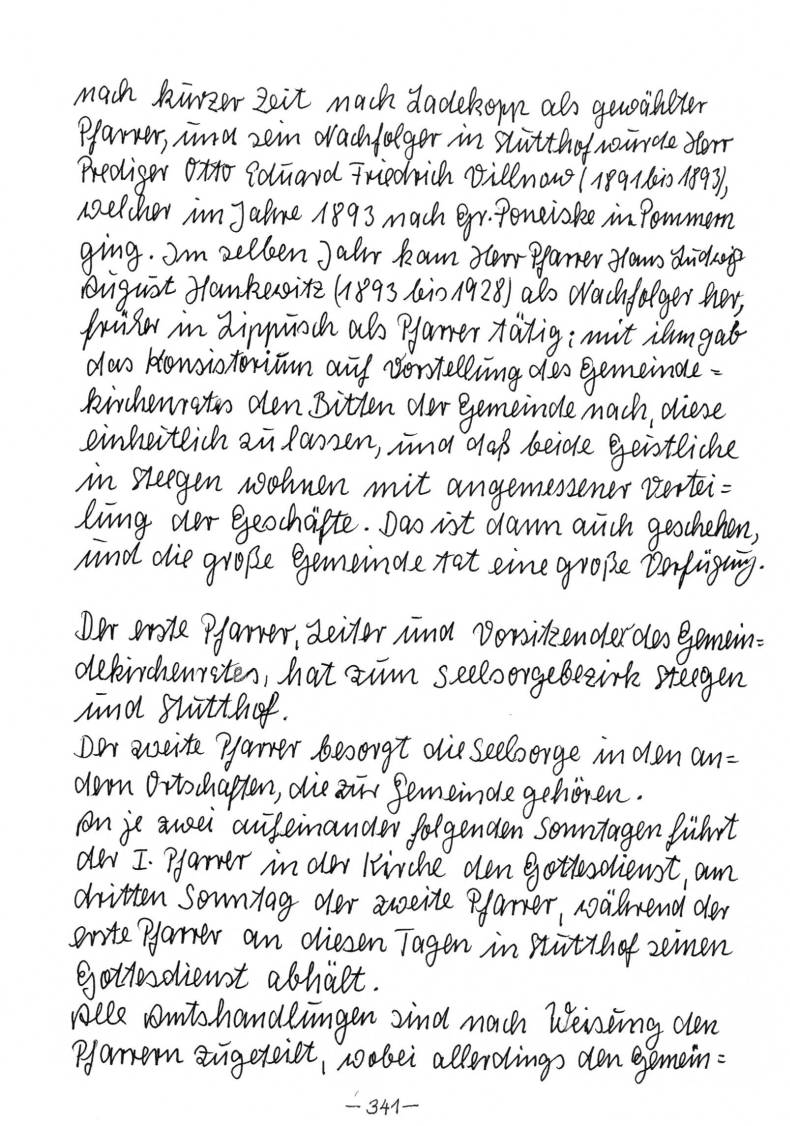 nach kurzer Zeit nach Ladekopp als gewählter
Pfarrer, und sein Nachfolger in Stutthof wurde Herr
Prediger Otto Eduard Friedrich Villnow (1891 bis 1893),
welcher im Jahre 1893 nach Gr. Poneiske in Pommern
ging. Im selben Jahr kam Herr Pfarrer Hans Ludwig
August Hankewitz (1893 bis 1928) als Nachfolger her,
früher in Lippusch als Pfarrer tätig; mit ihm gab
das Konsistorium auf Vorstellung des Gemeinde=
kirchenrates den Bitten der Gemeinde nach, diese
einheitlich zu lassen, und daß beide Geistliche
in Steegen wohnen mit angemessener Vertei=
lung der Geschäfte. Das ist dann auch geschehen,
und die große Gemeinde tat eine große Verfügung.
Der erste Pfarrer, Leiter und Vorsitzender des Gemein=
dekirchenrates, hat zum Seelsorgebezirk Steegen
und Stutthof.
Der zweite Pfarrer besorgt die Seelsorge in den an=
dern Ortschaften, die zur Gemeinde gehören.
An je zwei aufeinander folgenden Sonntagen führt
der I. Pfarrer in der Kirche den Gottesdienst, am
dritten Sonntag der zweite Pfarrer, während der
erste Pfarrer an diesen Tagen in Stutthof seinen
Gottesdienst abhält.
Alle Amtshandlungen sind nach Weisung den
Pfarrern zugeteilt, wobei allerdings den Gemein=
-341-